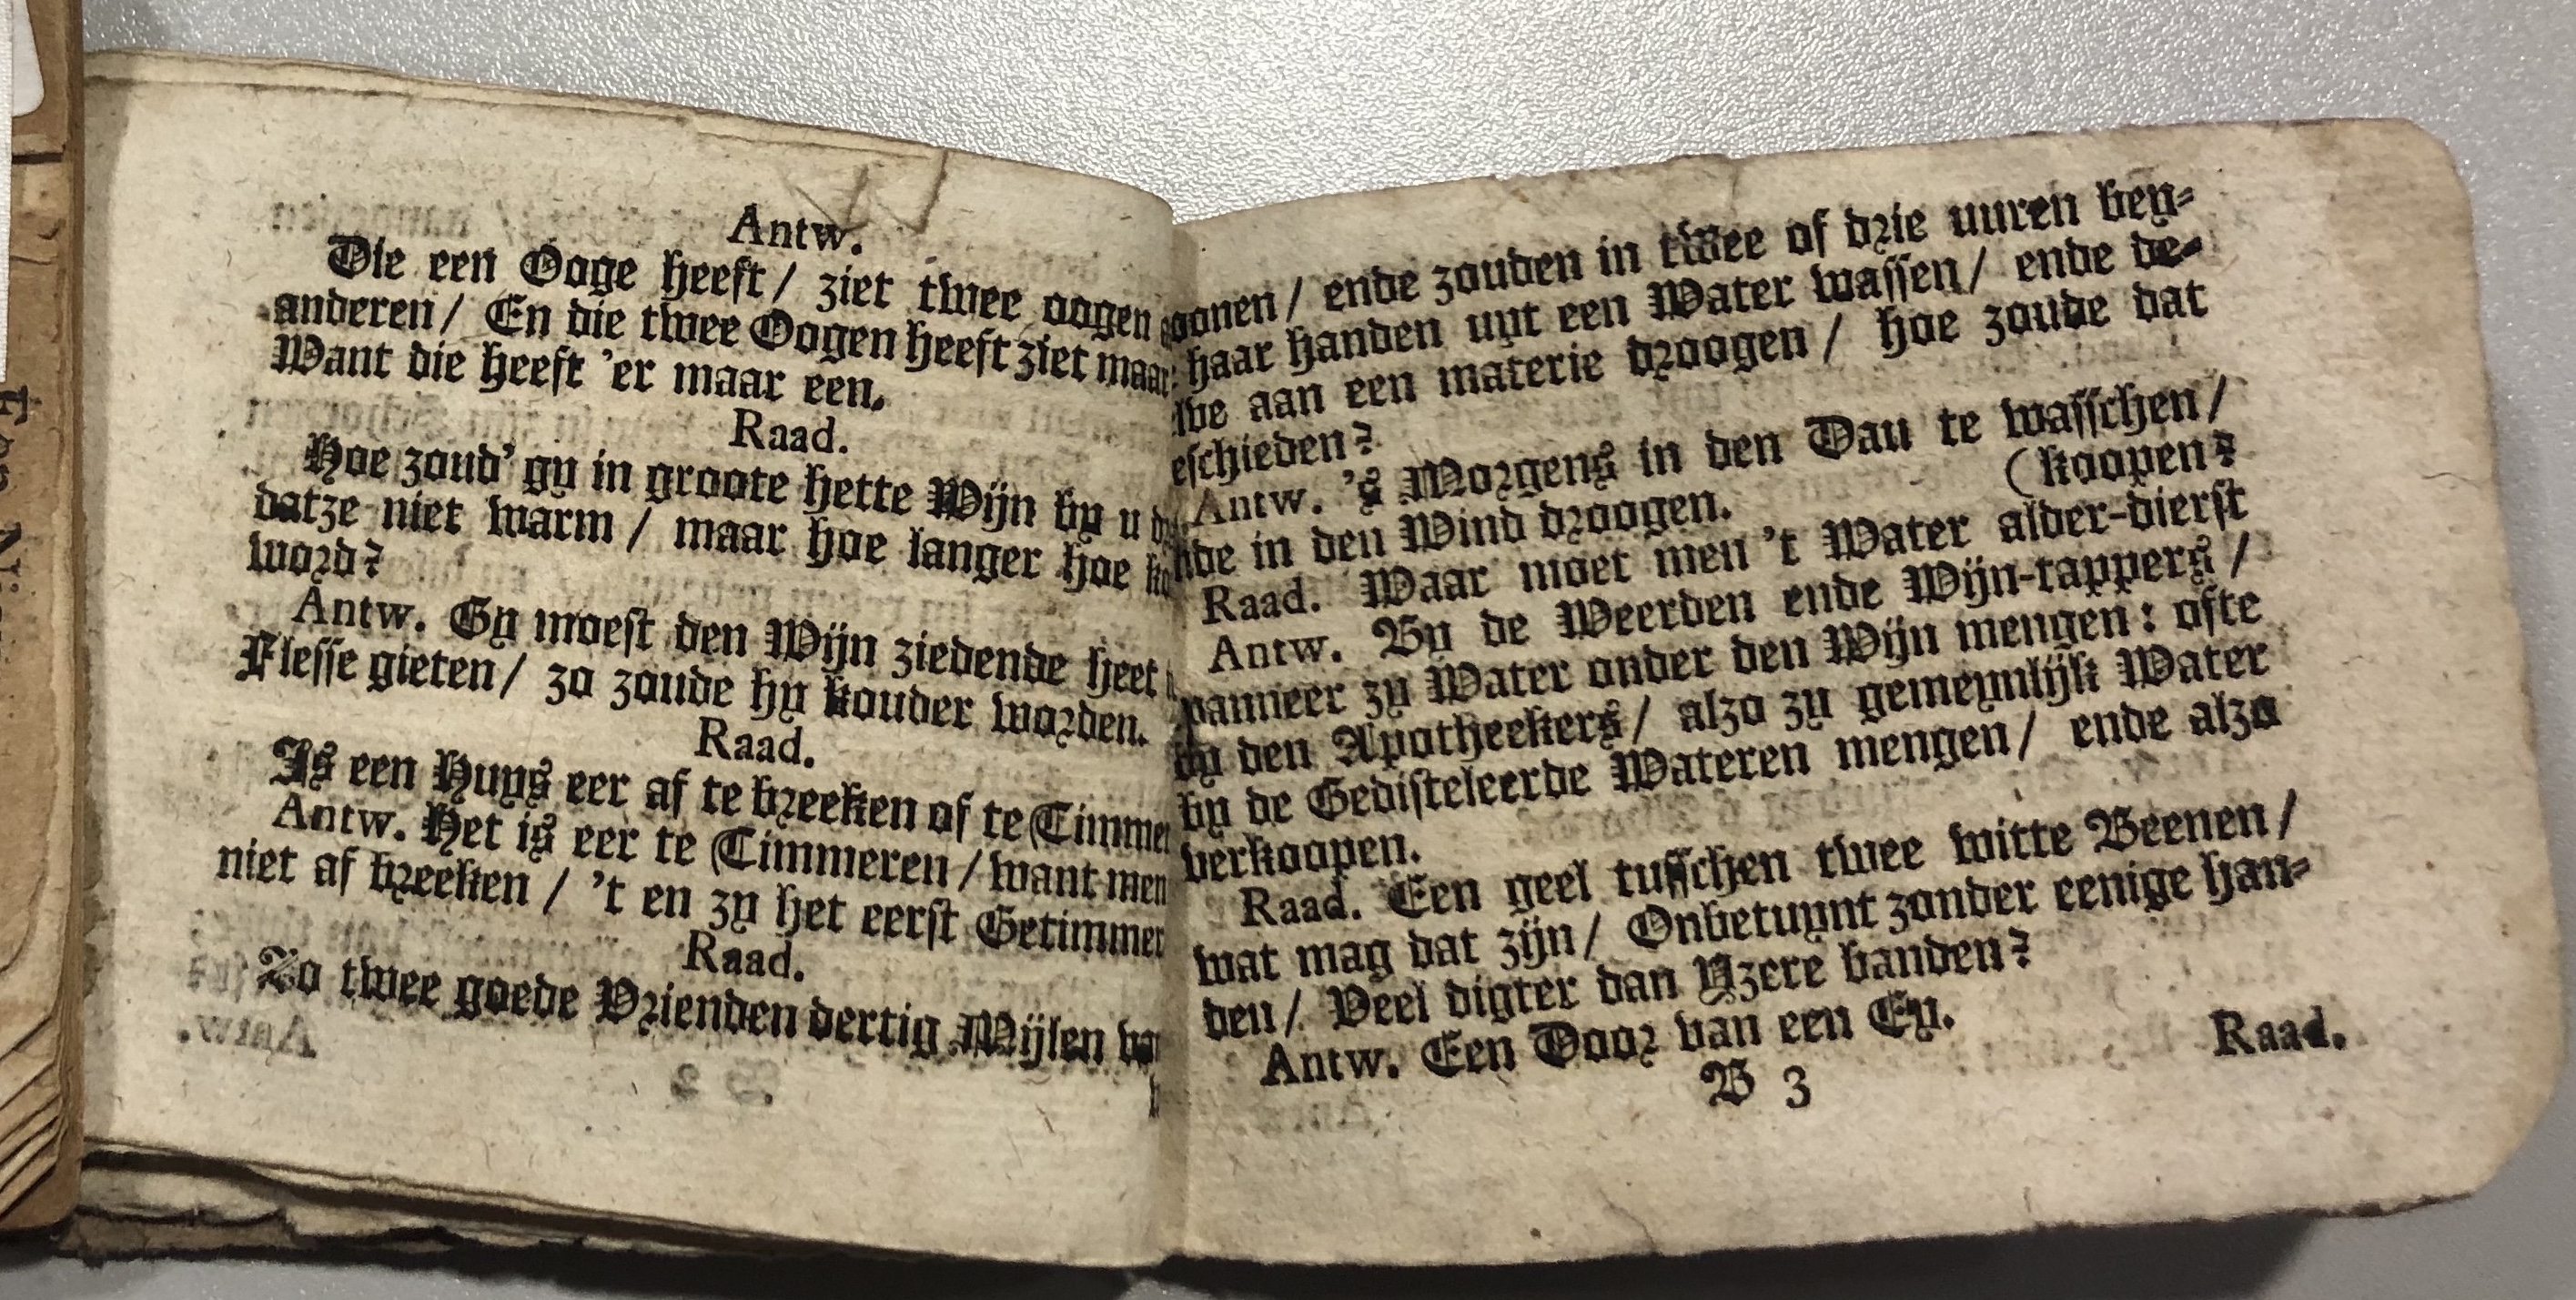 Antw.
Die een Ooge heeft / ziet twee oogen
anderen / En die twee Oogen heeft ziet maar
Want die heeft 'er maar een.
Raad.
Hoe zoud' gy in groote hette Wijn by u
datze niet warm / maar hoe langer hoe
word?
Antw. Gy moest den Wijn ziedende heet
Flesse gieten / zo zoude hy kouder worden.
Raad.
Is een Huys eer af te breeken of te Timmer
Antw. Het is eer te Timmeren / want men
niet af breeken / 't en zy het eerst Getimmer
Raad.
Zo twee goede Vrienden dertig Mijlen
oonen / ende zouden in twee of drie uuren bey-
haar handen uyt een Water wassen / ende de-
lve aan een materie droogen / hoe zoude dat
eschieden?
Antw. 's Morgens in den Dau te wasschen /
(koopen?
nde in den Wind droogen.
Raad. Waar moet men 't Water alder-dierst
Antw. By de Weerden ende Wijn-tappers /
wanneer zy Water onder den Wijn mengen: ofte
by den Apotheekers / alzo zy gemeynlijk Water
by de Gedisteleerde Wateren mengen / ende alzo
verkoopen.
Raad. Een geel tusschen twee witte Beenen /
wat mag dat zijn / Onbetuynt zonder eenige han-
den / Veel digter dan Yzere banden?
Antw. Een Door van een Ey.
B 3
Raad.